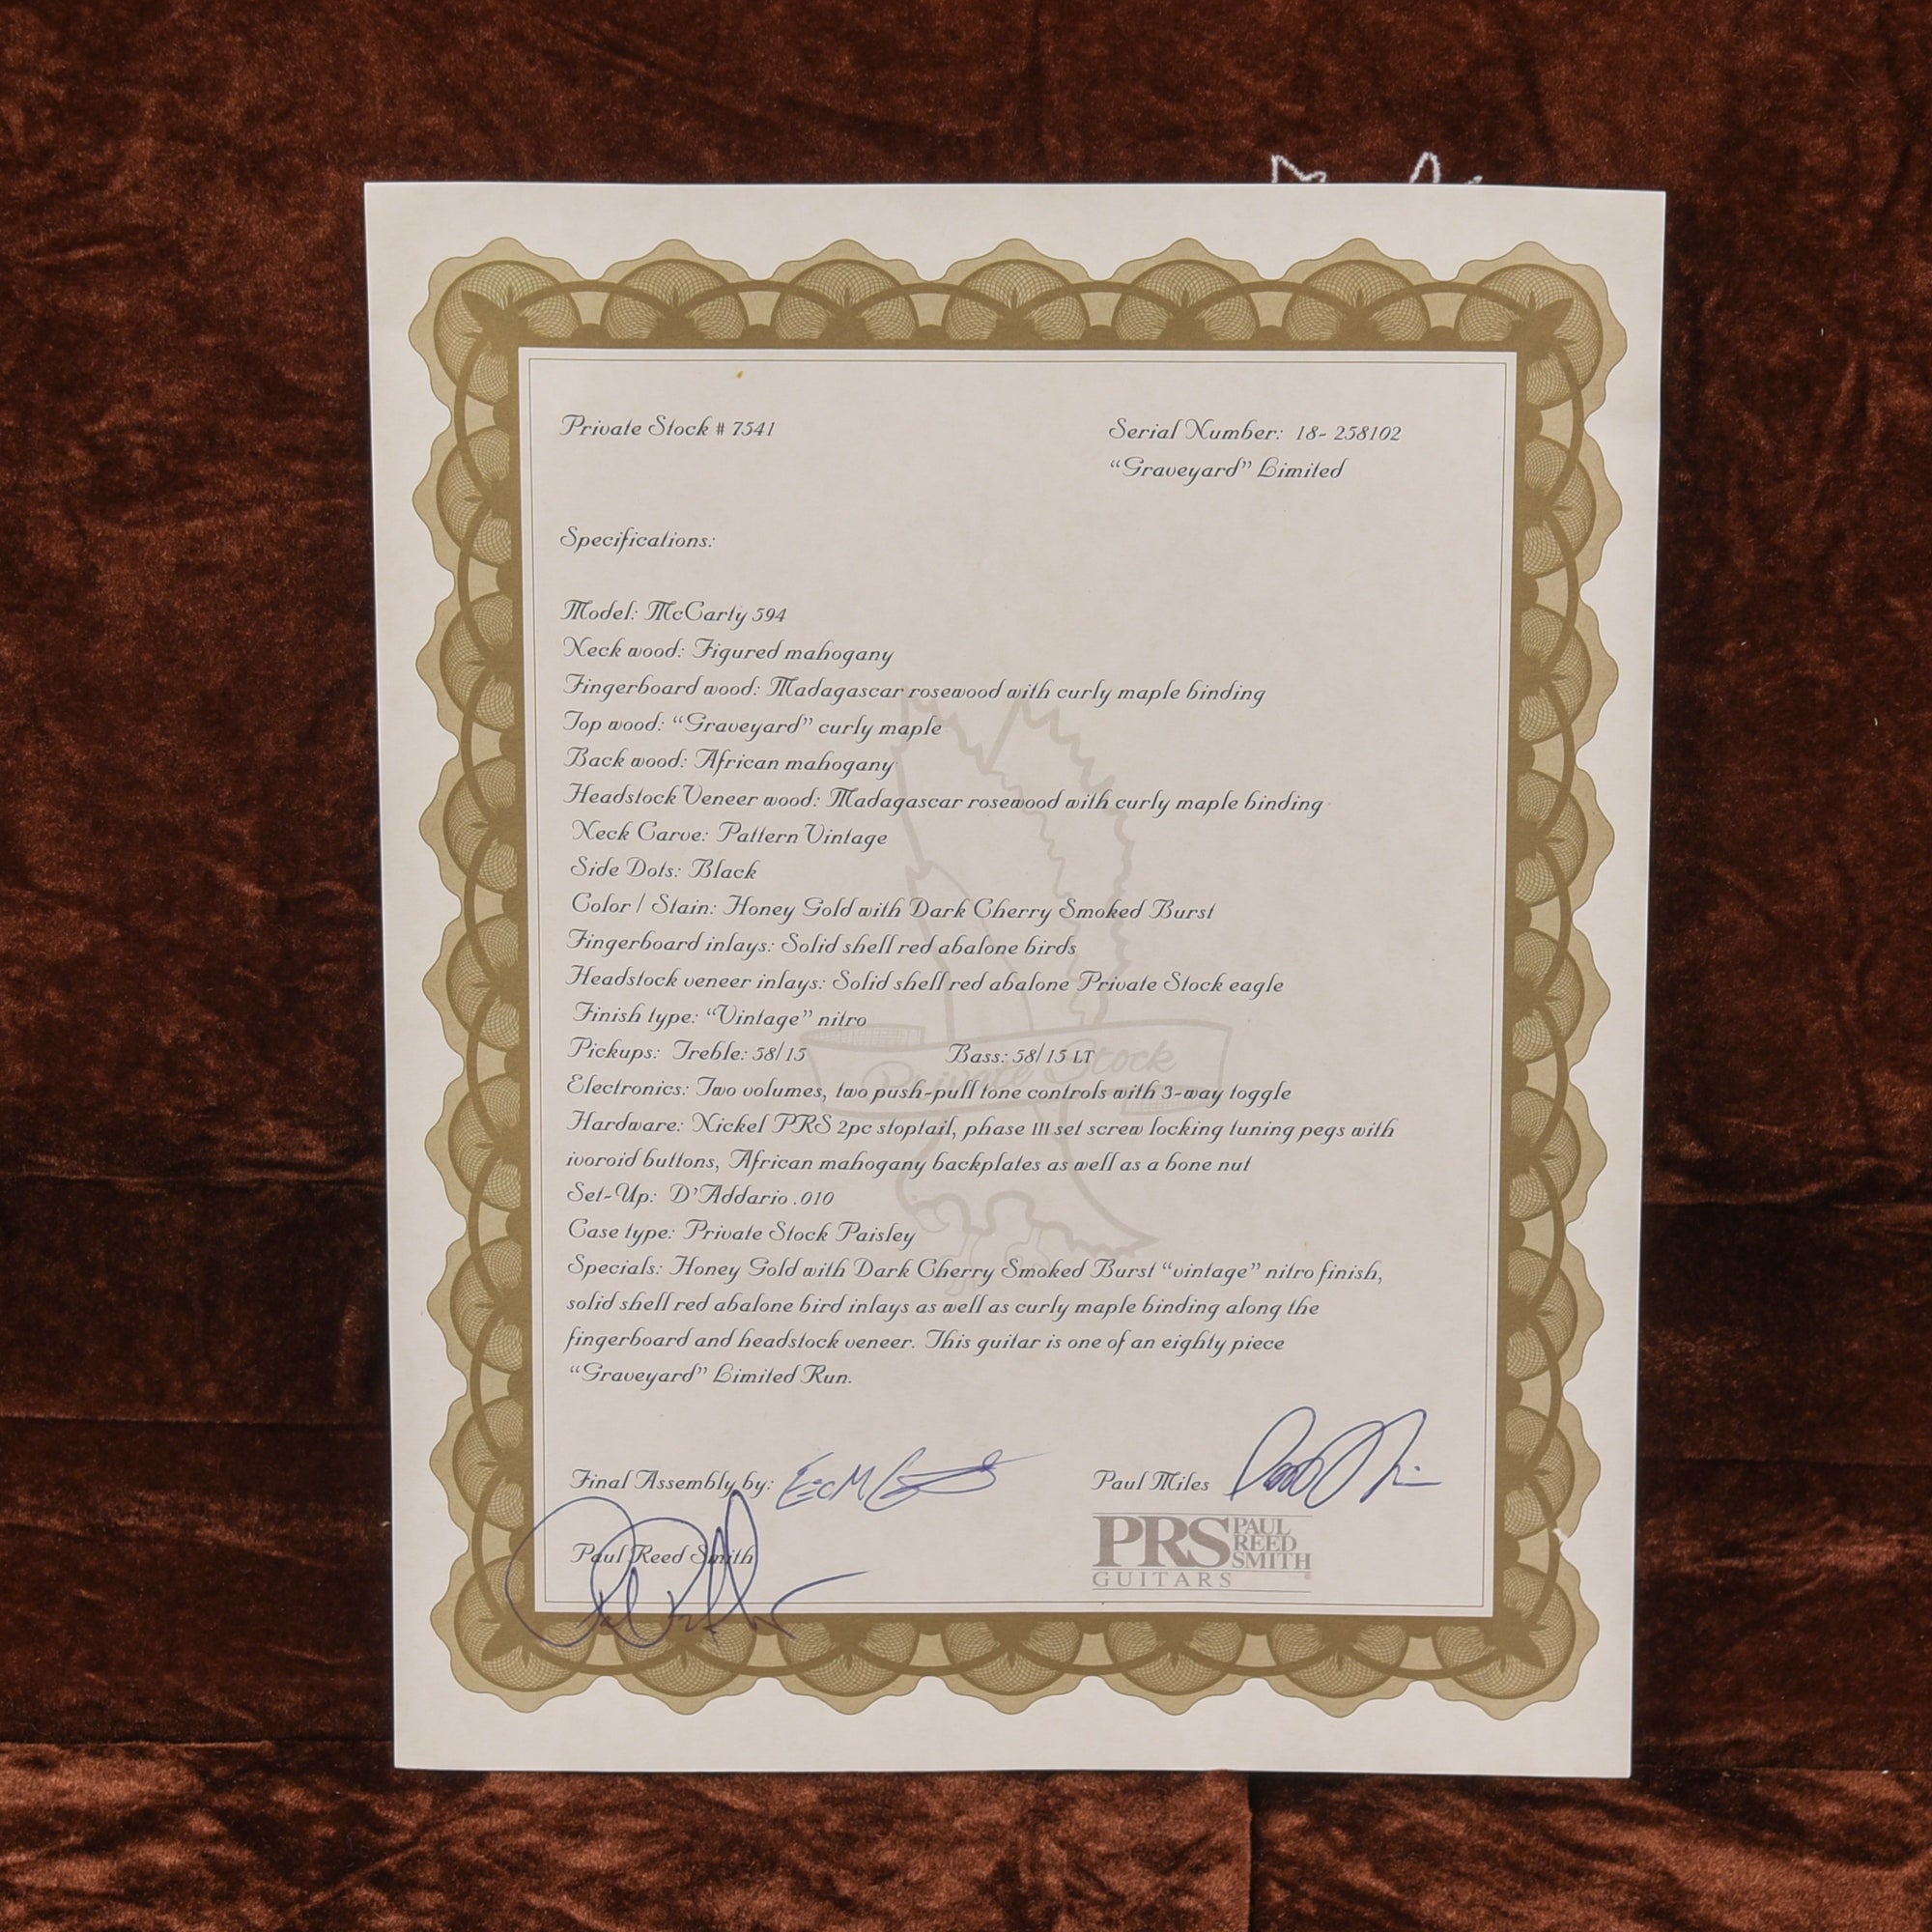 Private Stock # 7541
Serial Number: 18- 258102
"Graveyard" Limited
Specifications:
Model: McCarty 594
Neck wood: Figured mahogany
Fingerboard wood: Madagascar rosewood with curly maple binding
Top wood: "Graveyard" curly maple
Back wood: African mahogany
Headstock Veneer wood: Madagascar rosewood with curly maple binding
Neck Carve: Pattern Vintage
Side Dots: Black
Color / Stain: Honey Gold with Dark Cherry Smoked Burst
Fingerboard inlays: Solid shell red abalone birds
Headstock veneer inlays: Solid shell red abalone Private Stock eagle
Finish type: "Vintage" nitro
Pickups: Treble: 58/15 Bass: 58/15 LT
Private Stock
Electronics: Two volumes, two push-pull tone controls with 3-way toggle
Hardware: Nickel PRS 2pc stoptail, phase III set screw locking tuning pegs with
ivoroid buttons, African mahogany backplates as well as a bone nut
Set-Up: D'Addario .010
Case type: Private Stock Paisley
Specials: Honey Gold with Dark Cherry Smoked Burst "vintage" nitro finish,
solid shell red abalone bird inlays as well as curly maple binding along the
fingerboard and headstock veneer. This guitar is one of an eighty piece
"Graveyard" Limited Run.
Final Assembly by:
Paul Miles
Paul Reed Smith
PRS PAUL REED SMITH
GUITARS